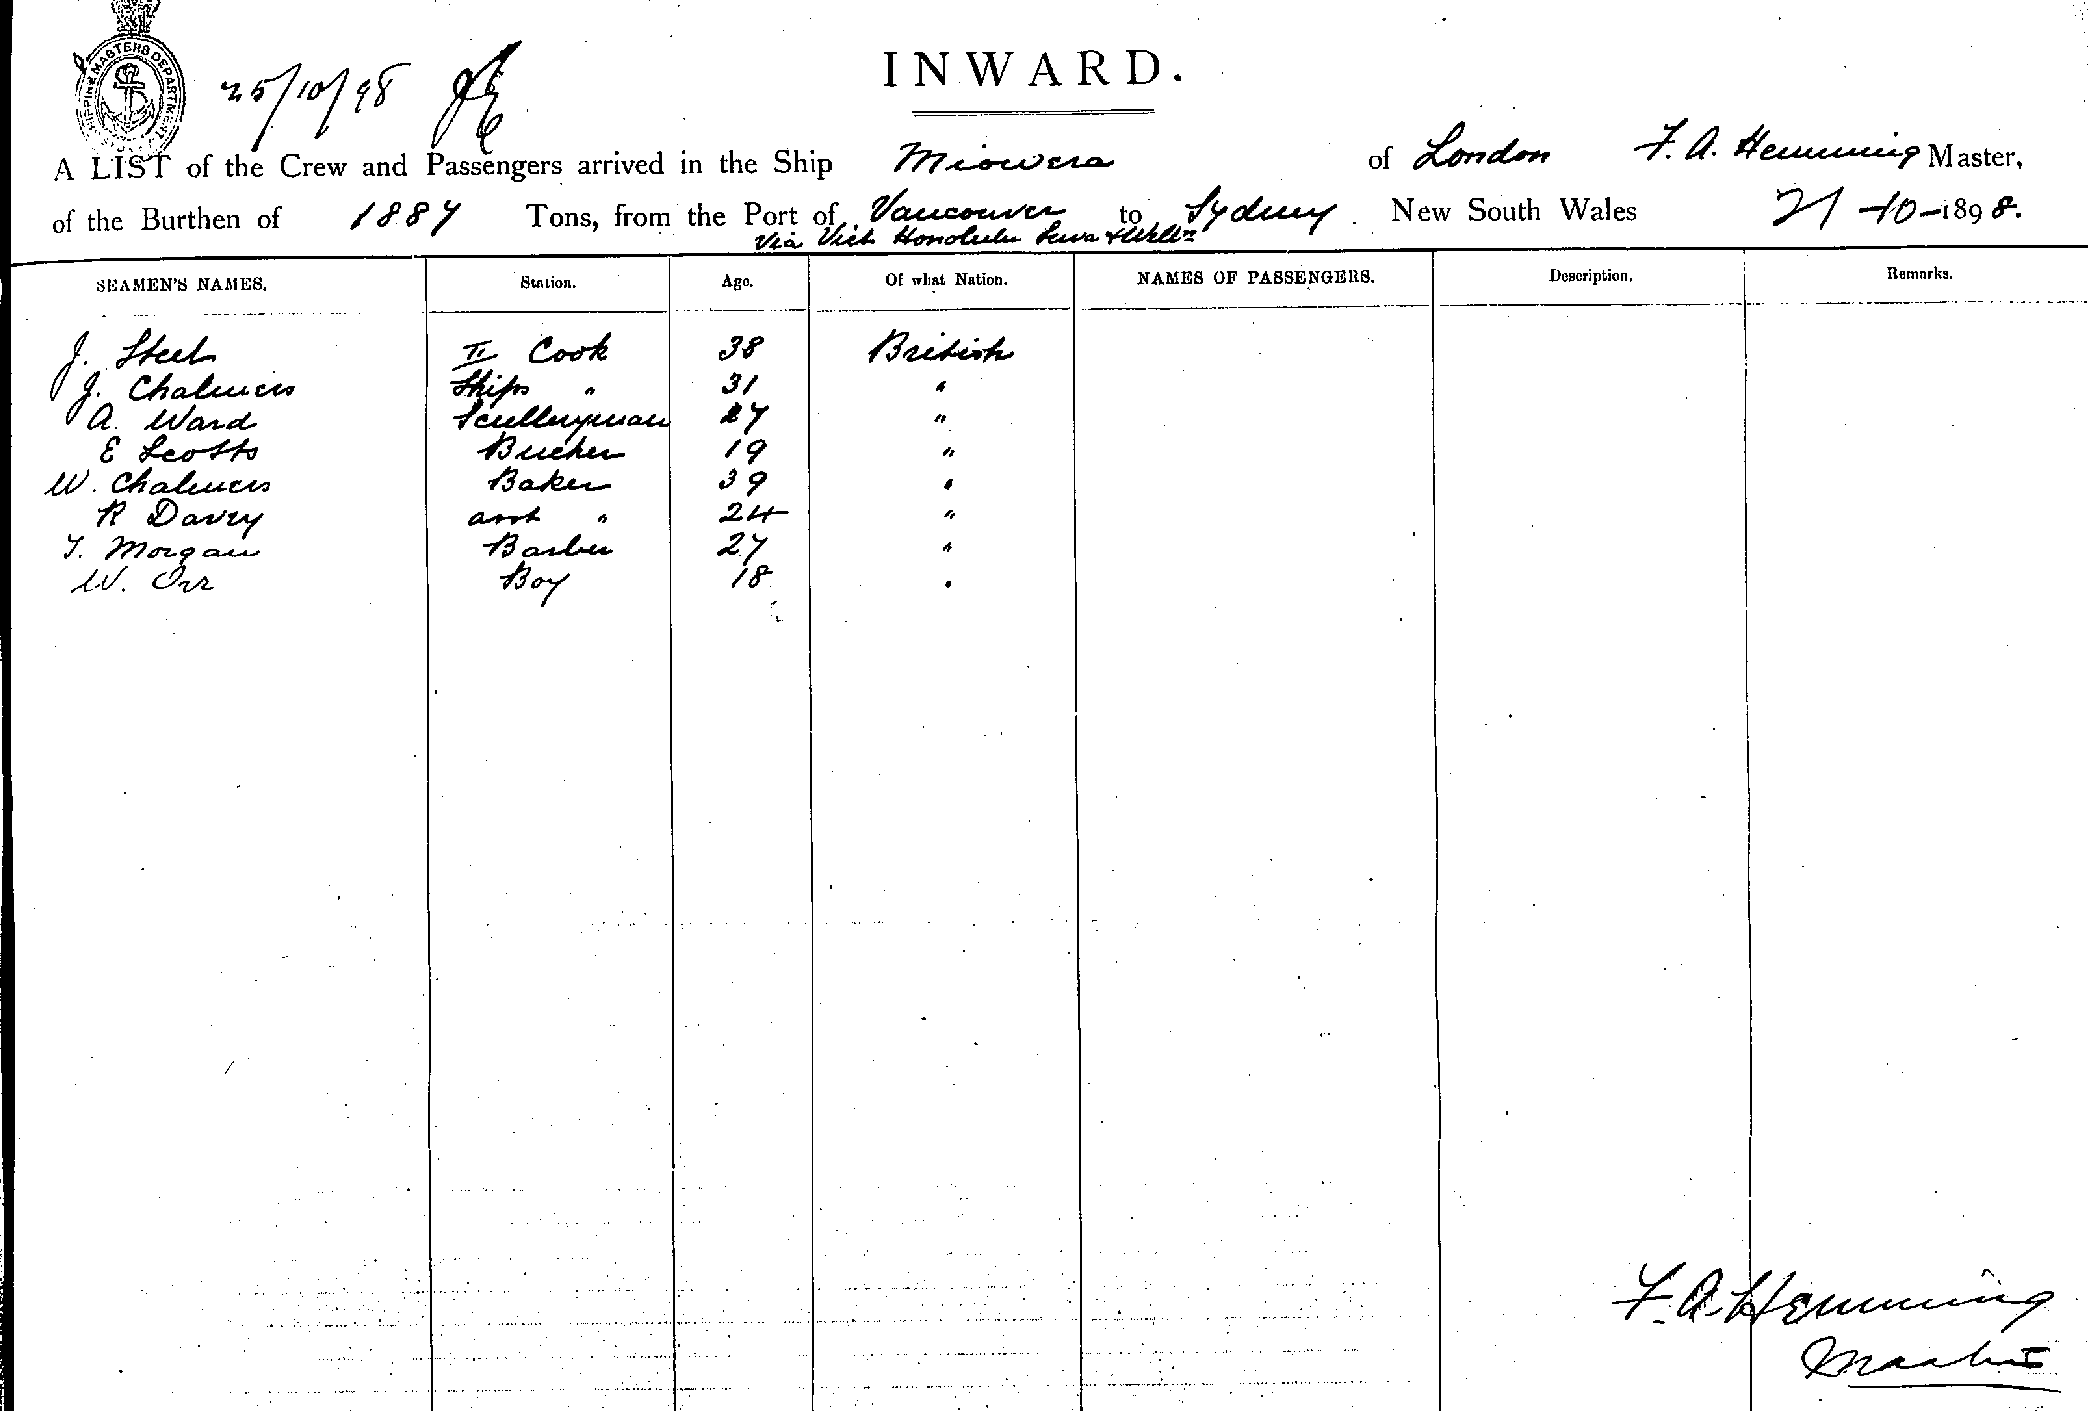 SHIPPING MASTERS DEPARTMENT
25/10/98
INWARD.
A LIST of the Crew and Passengers arrived in the Ship Miowera of London F. A. Hemming Master,
of the Burthen of 1887 Tons, from the Port of Vancouver to Sydney New South Wales 21-10-1898.
Via Vict Honolulu Suva &
SEAMEN'S NAMES. Station. Age. Of what Nation. NAMES OF PASSENGERS. Description. Remarks.
J. Steel II Cook 38 British
J. Chalmers Ships " 31 "
A. Ward Sculleryman 27 "
E Scotts Bucher 19 "
W. Chalmers Baker 39 "
R Davey asst " 24 "
T. Morgan Barber 27 "
W. Orr Boy 18 "
F. A. Hemming
Master